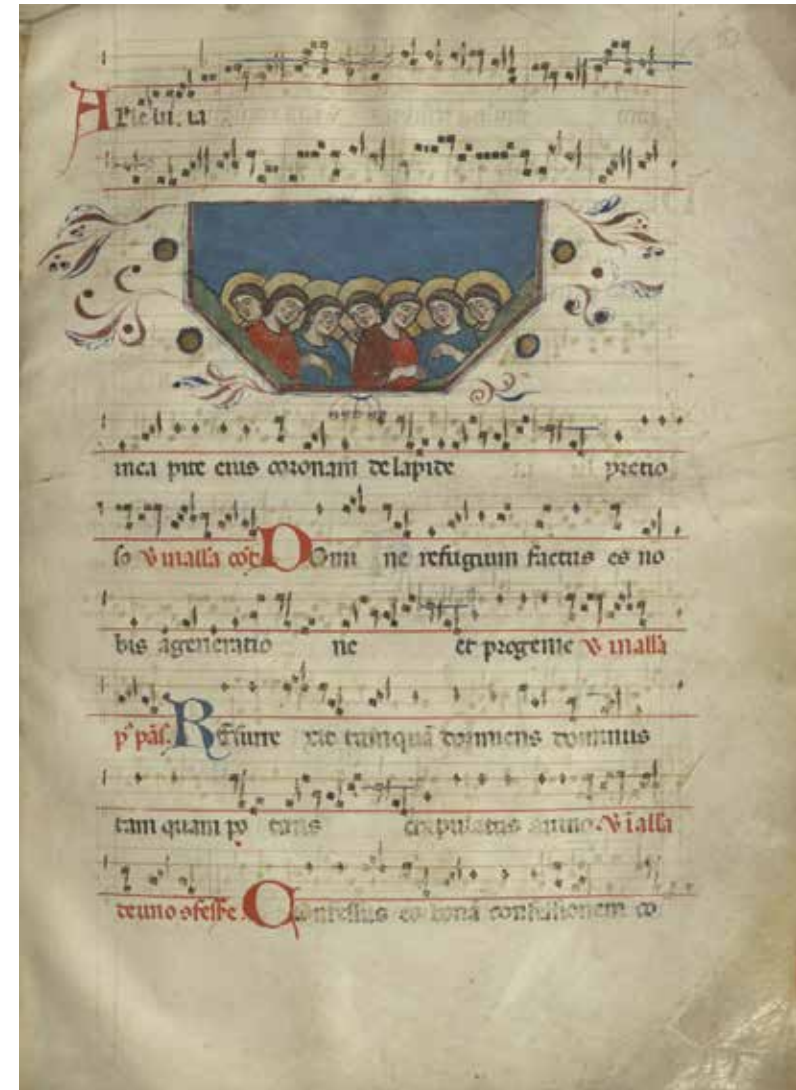 A lle lu. ia
in ca pite eius coronam de lapide pretio
so
Domi ne refugium factus es no
bis a generatio ne et progenie
Resurre xit tamquā dormiens dominus
tam quam po tens crapulatus a uino
Confessus es bonā confessionem co